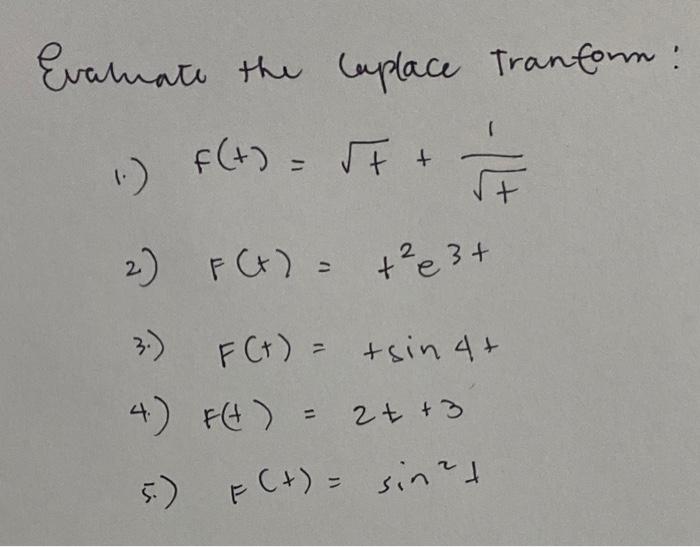 Evaluate the Laplace Tranform :
1.) F(t) = √t + 1/√t
2) F(t) = t²e³t
3.) F(t) = tsin 4t
4.) F(t) = 2t + 3
5.) F(t) = sin²t